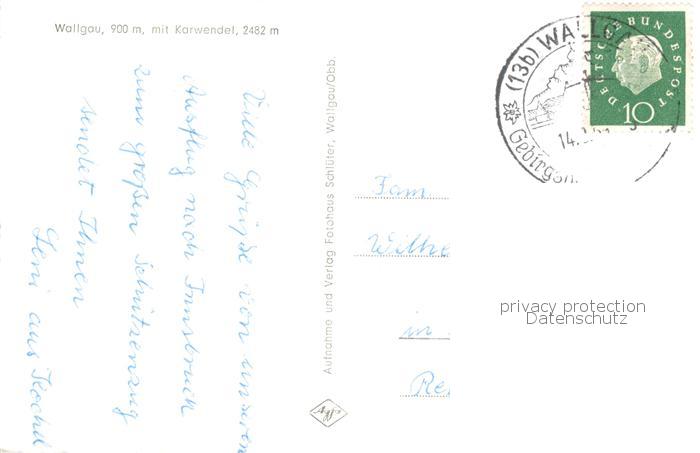 Wallgau, 900 m, mit Karwendel, 2482 m
Viele Grüße von unserem
Ausflug nach Innsbruck
zum großen Schützenzug
sendet Ihnen
Leni aus Kochel
Aufnahme und Verlag Fotohaus Schlüter, Wallgau/Obb.
Agfa
Fam
Wilhe
in
Re
(13b) WALLG
Gebirgs
14.
DEUTSCHE BUNDESPOST
10
privacy protection
Datenschutz